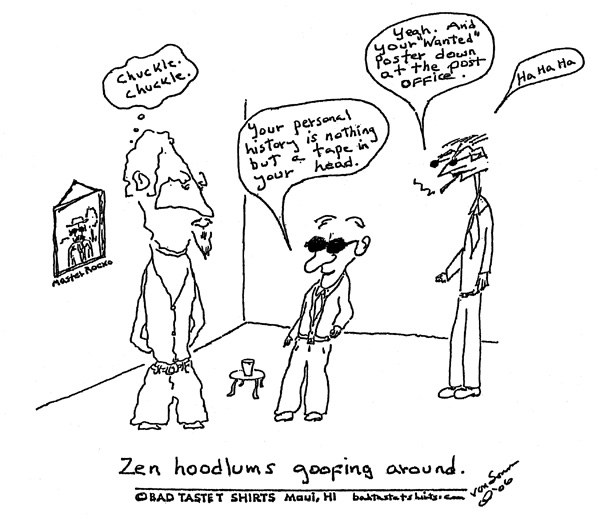 Chuckle.
Chuckle.
Your personal
history is nothing
but a tape in
your head.
Yeah. And
your "Wanted"
poster down
at the post
office.
Ha Ha Ha
Master Rocko
Zen hoodlums goofing around.
© BAD TASTE T SHIRTS Maui, HI badtastetshirts.com
'06